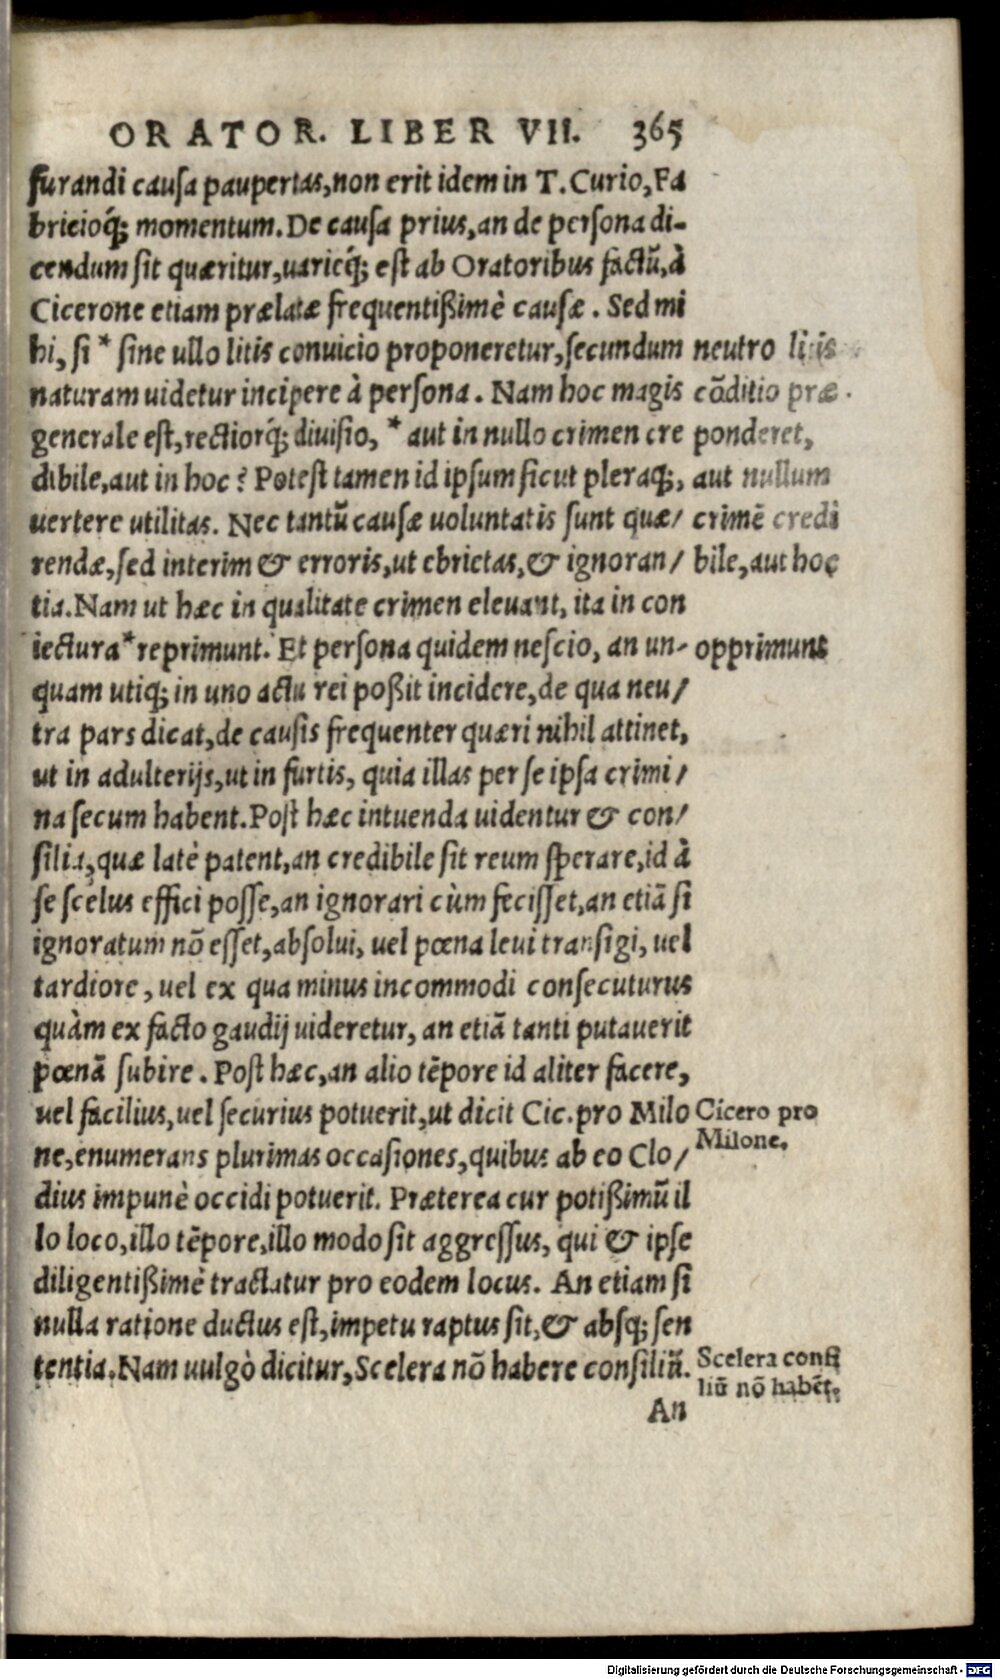 ORATOR. LIBER VII. 365
furandi causa paupertas, non erit idem in T. Curio, Fa
bricioq́; momentum. De causa prius, an de persona di-
cendum sit quæritur, uarieq́; est ab Oratoribus factũ, à
Cicerone etiam prælatæ frequentißimè causæ. Sed mi
hi, si * sine ullo litis conuicio proponeretur, secundum
naturam uidetur incipere à persona. Nam hoc magis
generale est, rectiorq́; diuisio, * aut in nullo crimen cre
dibile, aut in hoc? Potest tamen id ipsum sicut pleraq;,
uertere utilitas. Nec tantũ causæ uoluntatis sunt quæ/
rendæ, sed interim & erroris, ut ebrietas, & ignoran/
tia. Nam ut hæc in qualitate crimen eleuant, ita in con
iectura * reprimunt. Et persona quidem nescio, an un-
quam utiq; in uno actu rei poßit incidere, de qua neu/
tra pars dicat, de causis frequenter quæri nihil attinet,
ut in adulterijs, ut in furtis, quia illas per se ipsa crimi/
na secum habent. Post hæc intuenda uidentur & con/
silia, quæ latè patent, an credibile sit reum sperare, id à
se scelus effici posse, an ignorari cùm fecisset, an etiã si
ignoratum nõ esset, absolui, uel pœna leui transigi, uel
tardiore, uel ex qua minus incommodi consecuturus
quàm ex facto gaudij uideretur, an etiã tanti putauerit
pœnã subire. Post hæc, an alio tẽpore id aliter facere,
uel facilius, uel securius potuerit, ut dicit Cic. pro Milo
ne, enumerans plurimas occasiones, quibus ab eo Clo/
dius impunè occidi potuerit. Præterea cur potißimũ il
lo loco, illo tẽpore, illo modo sit aggressus, qui & ipse
diligentißimè tractatur pro eodem locus. An etiam si
nulla ratione ductus est, impetu raptus sit, & absq; sen
tentia. Nam uulgò dicitur, Scelera nõ habere consiliũ.
An
neutro litis
cõditio præ
ponderet,
aut nullum
crimẽ credi
bile, aut hoc
opprimunt
Cicero pro
Milone.
Scelera consi
liũ nõ habẽt.
Digitalisierung gefördert durch die Deutsche Forschungsgemeinschaft - DFG